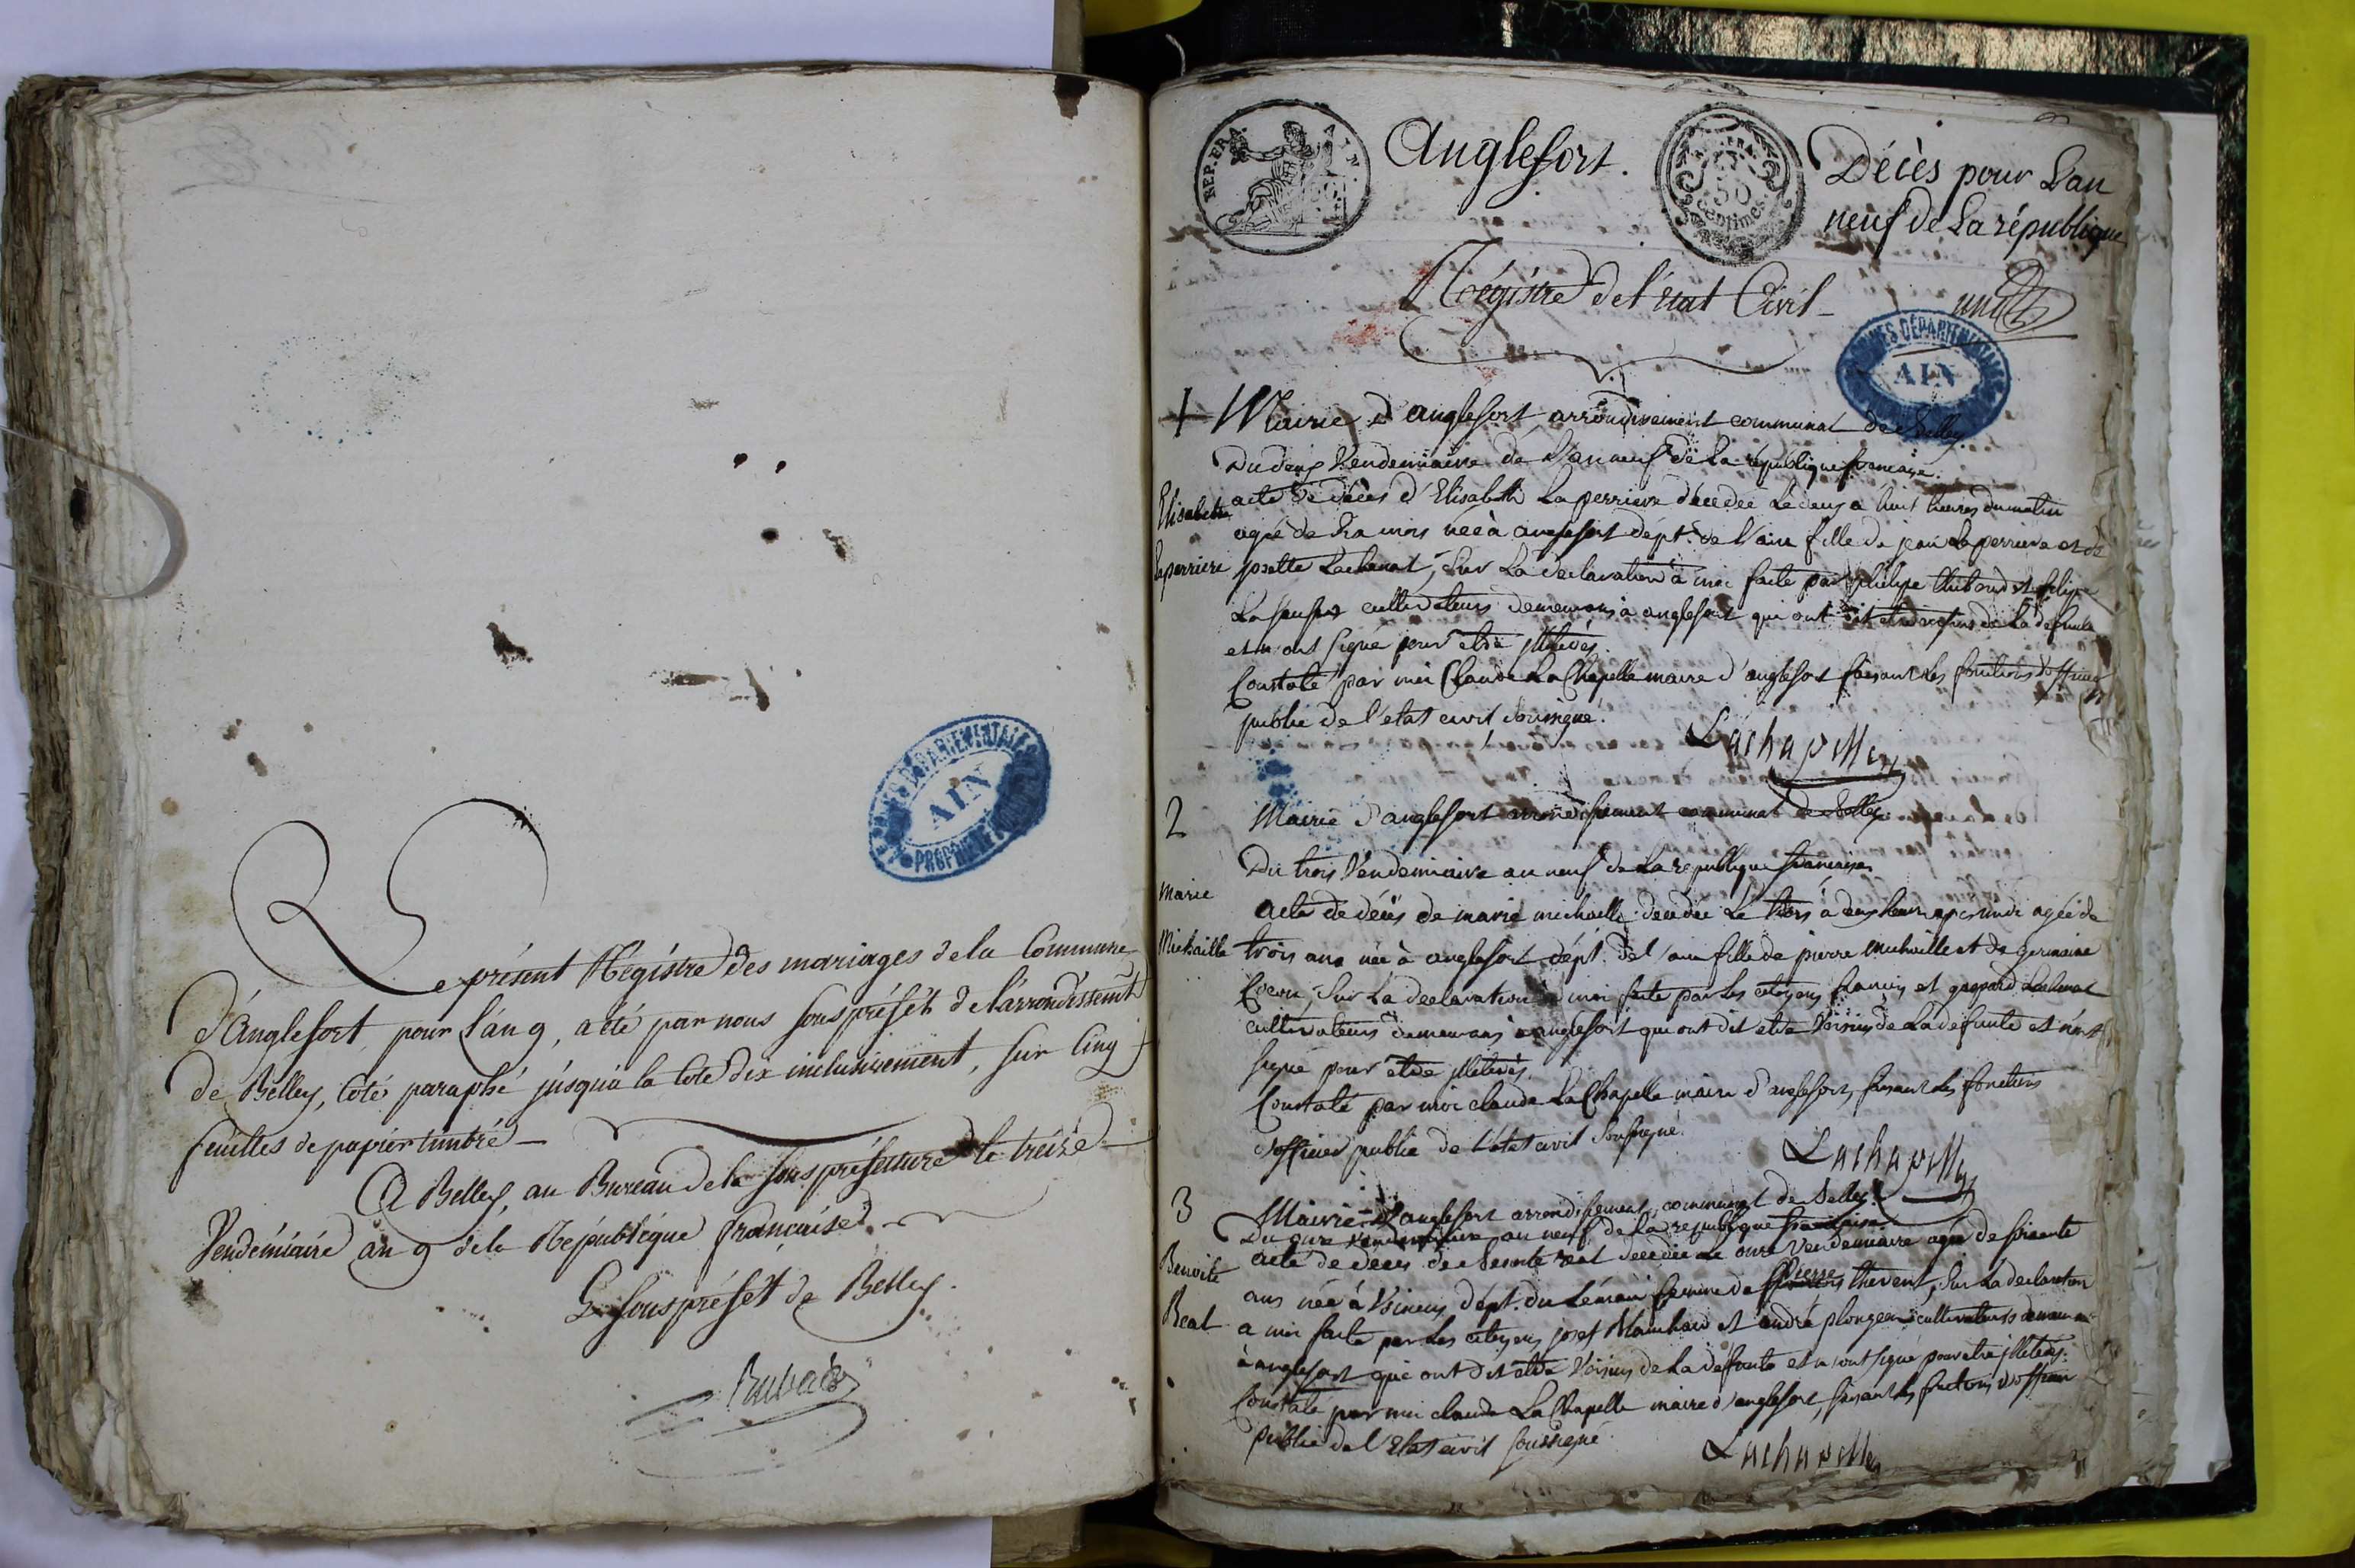 Le présent Régistre des mariages de la Commune
d'Anglefort, pour l'an 9, a été par nous sous préfét de l'arrondissemt
de Belley, coté paraphé jusqu'a la cote dix inclusivement, sur cinq
feuilles de papier timbré —
A Belley, au Bureau de la sous préfecture le treize
Vendémiaire an 9 de la République française.
Le sous préfét de Belley.
ARCHIVES DÉPARTEMENTALES
AIN
PROPRIÉTÉ PUBLIQUE
REP. FRA.
AIN.
Anglefort.
50
centimes
Décès pour L'an
neuf de La république
Régistre de l'état Civil
ARCHIVES DÉPARTEMENTALES
AIN
1 Mairie d'anglefort arrondissement communal de Belley
Du deux Vendemiaire de l'an neuf de la république francaise.
Elisabeth
Laperriere
acte de décès d'Elisabeth La perriere décedée le deux a huit heures du matin
agée de mois née à anglefort dépt. de l'ain fille de jean Laperriere et de
josette Lachanat, sur La declaration à moi faite par philipe thiboud et felipe
cultivateurs demeurans à anglefort qui ont dit etre voisins de la defunte
et n'ont signé pour etre illiterés.
Constaté par moi Claude La Chapelle maire d'anglefort faisant les fonctions d'officier
public de l'etat civil soussigné.
Lachapelle
2 Mairie d'anglefort arrondissement communal de Belley.
Du trois Vendemiaire an neuf de la republique francaise
Marie
Michaille
acte de décès de marie michaille decedée Le trois à deux heures apres midi agée de
trois ans née à anglefort dépt. de l'ain fille de pierre michaille et de germaine
sur la declaration à moi faite par les citoyens francois et gaspard Lachanat
cultivateurs demeurans à anglefort qui ont dit etre voisins de la defunte et n'ont
signé pour etre illiterés.
Constaté par moi claude La Chapelle maire d'anglefort, faisant les fonctions
d'officier public de l'etat civil soussigné.
Lachapelle
3 Mairie d'anglefort arrondissement communal de Belley.
Du onze vendemiaire an neuf de la republique francaise.
Benoite
Reat
acte de deces de benoite reat decedée le onze vendemiaire agée de soixante
ans née à dépt. du Léman femme de pierre thevent, sur la declaration
a moi faite par les citoyens josef et andré cultivateurs
à anglefort qui ont dit etre voisins de la defunte et n'ont signé pour etre illiterés.
Constaté par moi claude La Chapelle maire d'anglefort, faisant les fonctions d'officier
public de l'etat civil soussigné.
Lachapelle